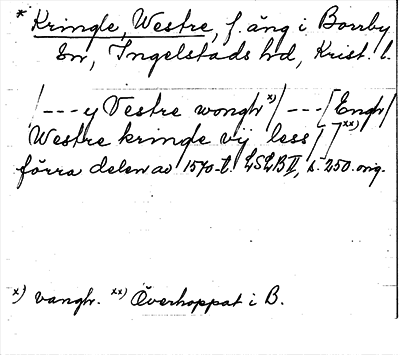 * Kringle, Westre, f. äng i Borrby
sn, Ingelstads hd, Krist. l.
/---y Vestre wongh x)/---[Engh/
Westre kringle vij less/]/xx)
förra delen av 1570-t. LSLB II, s. 250. orig.
x) vangh. xx) Överhoppat i B.